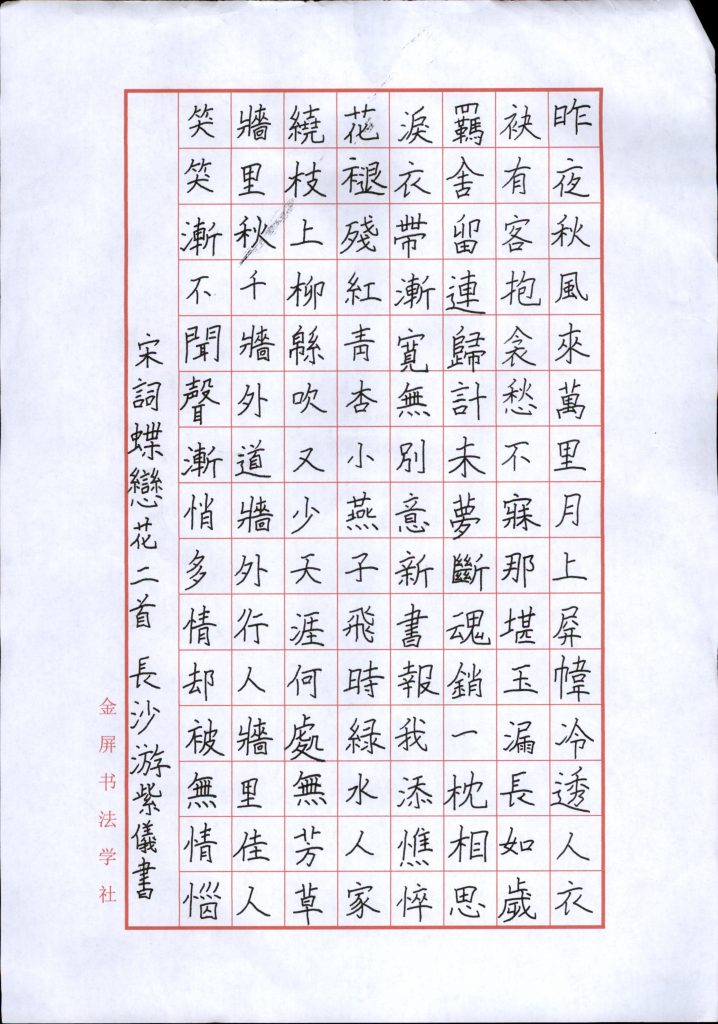 昨夜秋風來萬里月上屏幃冷透人衣
袂有客抱衾愁不寐那堪玉漏長如歲
羈舍留連歸計未夢斷魂銷一枕相思
淚衣帶漸寬無別意新書報我添憔悴
花褪殘紅青杏小燕子飛時緑水人家
繞枝上柳緜吹又少天涯何處無芳草
牆里秋千牆外道牆外行人牆里佳人
笑笑漸不聞聲漸悄多情却被無情惱
宋詞蝶戀花二首 長沙游紫儀書
金屏书法学社